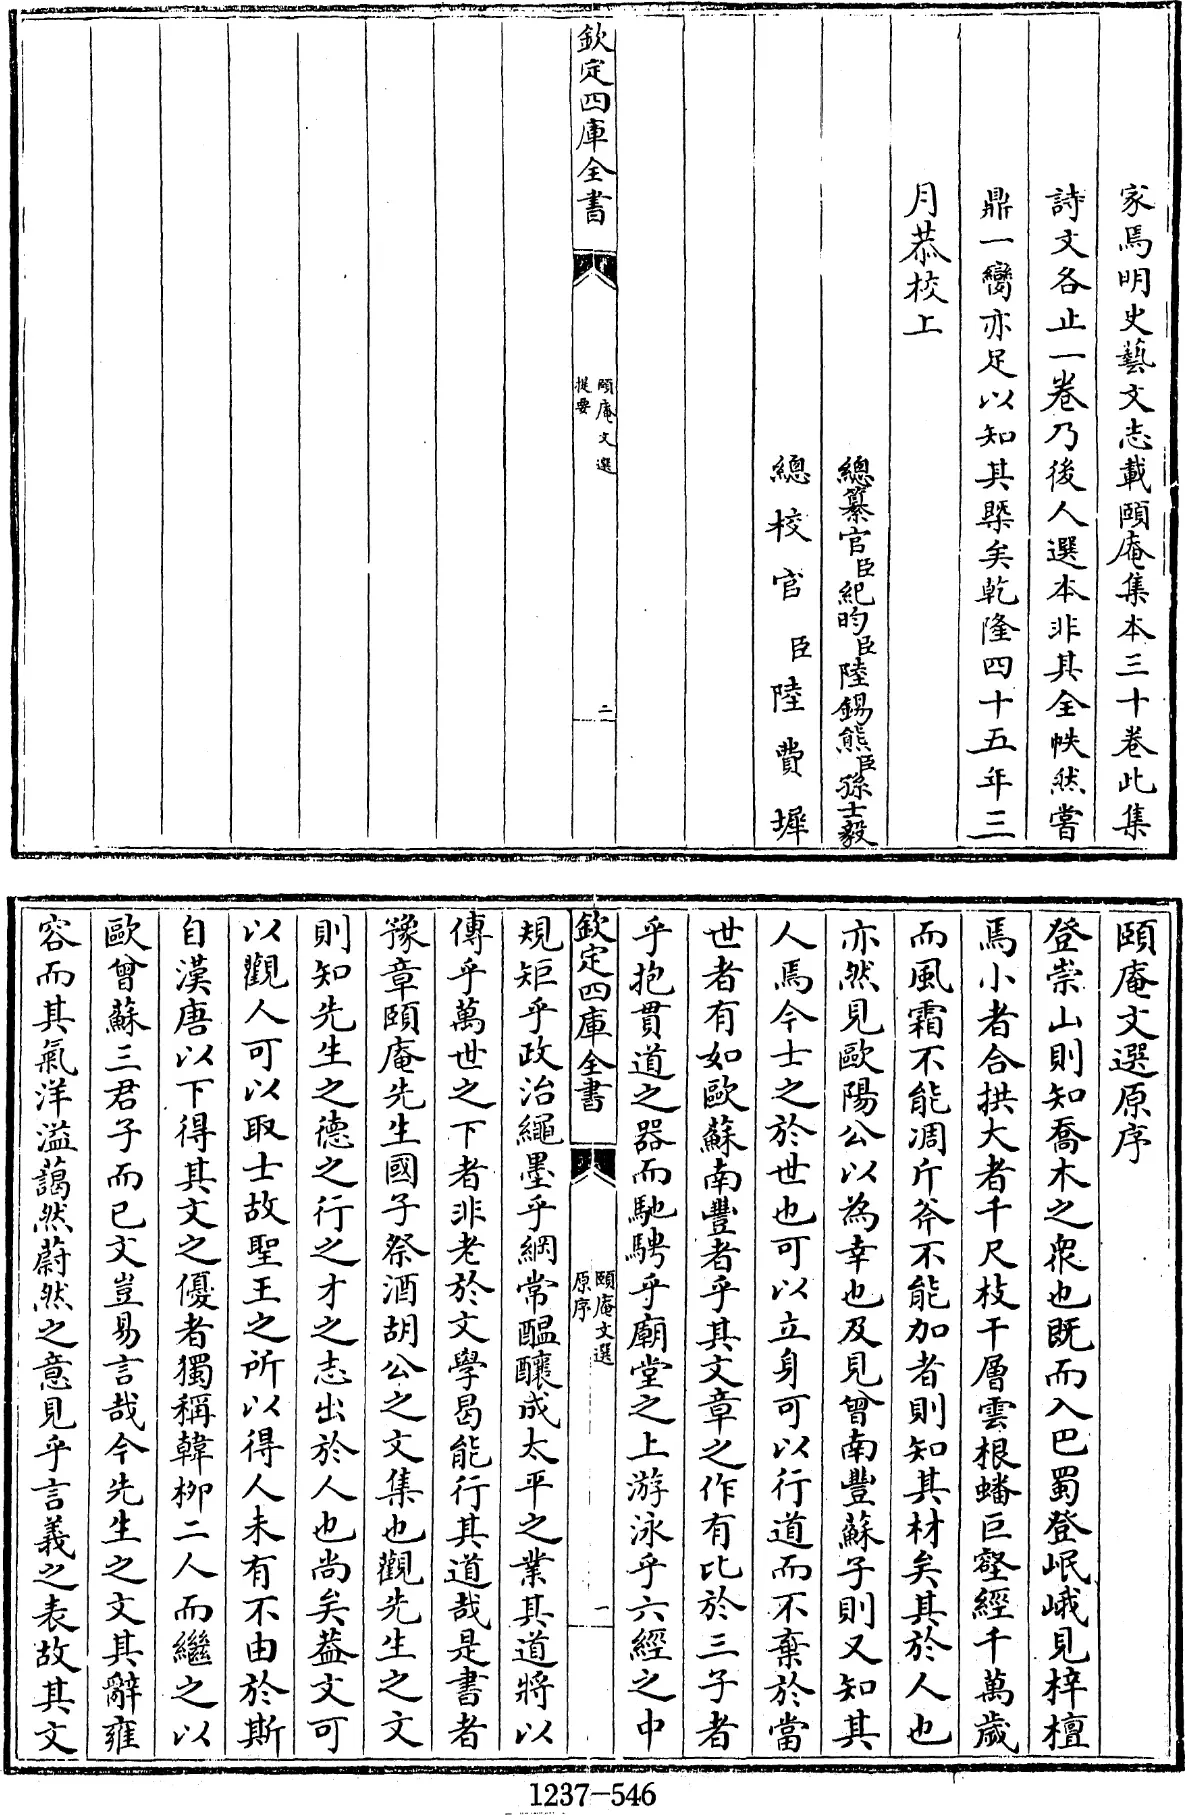 家焉明史藝文志載頤庵集本三十卷此集
詩文各止一卷乃後人選本非其全帙然嘗
鼎一臠亦足以知其槩矣乾隆四十五年三
月恭校上
總纂官臣紀昀臣陸錫熊臣孫士毅
總校官臣陸費墀
欽定四庫全書
頤庵文選
提要
二
頤庵文選原序
登崇山則知喬木之衆也既而入巴蜀登岷峨見梓檀
焉小者合拱大者千尺枝干層雲根蟠巨壑經千萬歲
而風霜不能凋斤斧不能加者則知其材矣其於人也
亦然見歐陽公以為幸也及見曾南豐蘇子則又知其
人焉今士之於世也可以立身可以行道而不棄於當
世者有如歐蘇南豐者乎其文章之作有比於三子者
乎抱貫道之器而馳騁乎廟堂之上游泳乎六經之中
欽定四庫全書
頤庵文選
原序
一
規矩乎政治繩墨乎綱常醖釀成太平之業其道將以
傳乎萬世之下者非老於文學曷能行其道哉是書者
豫章頤庵先生國子祭酒胡公之文集也觀先生之文
則知先生之德之行之才之志出於人也尚矣葢文可
以觀人可以取士故聖王之所以得人未有不由於斯
自漢唐以下得其文之優者獨稱韓柳二人而繼之以
歐曾蘇三君子而已文豈易言哉今先生之文其辭雍
容而其氣洋溢藹然蔚然之意見乎言義之表故其文
1237-546